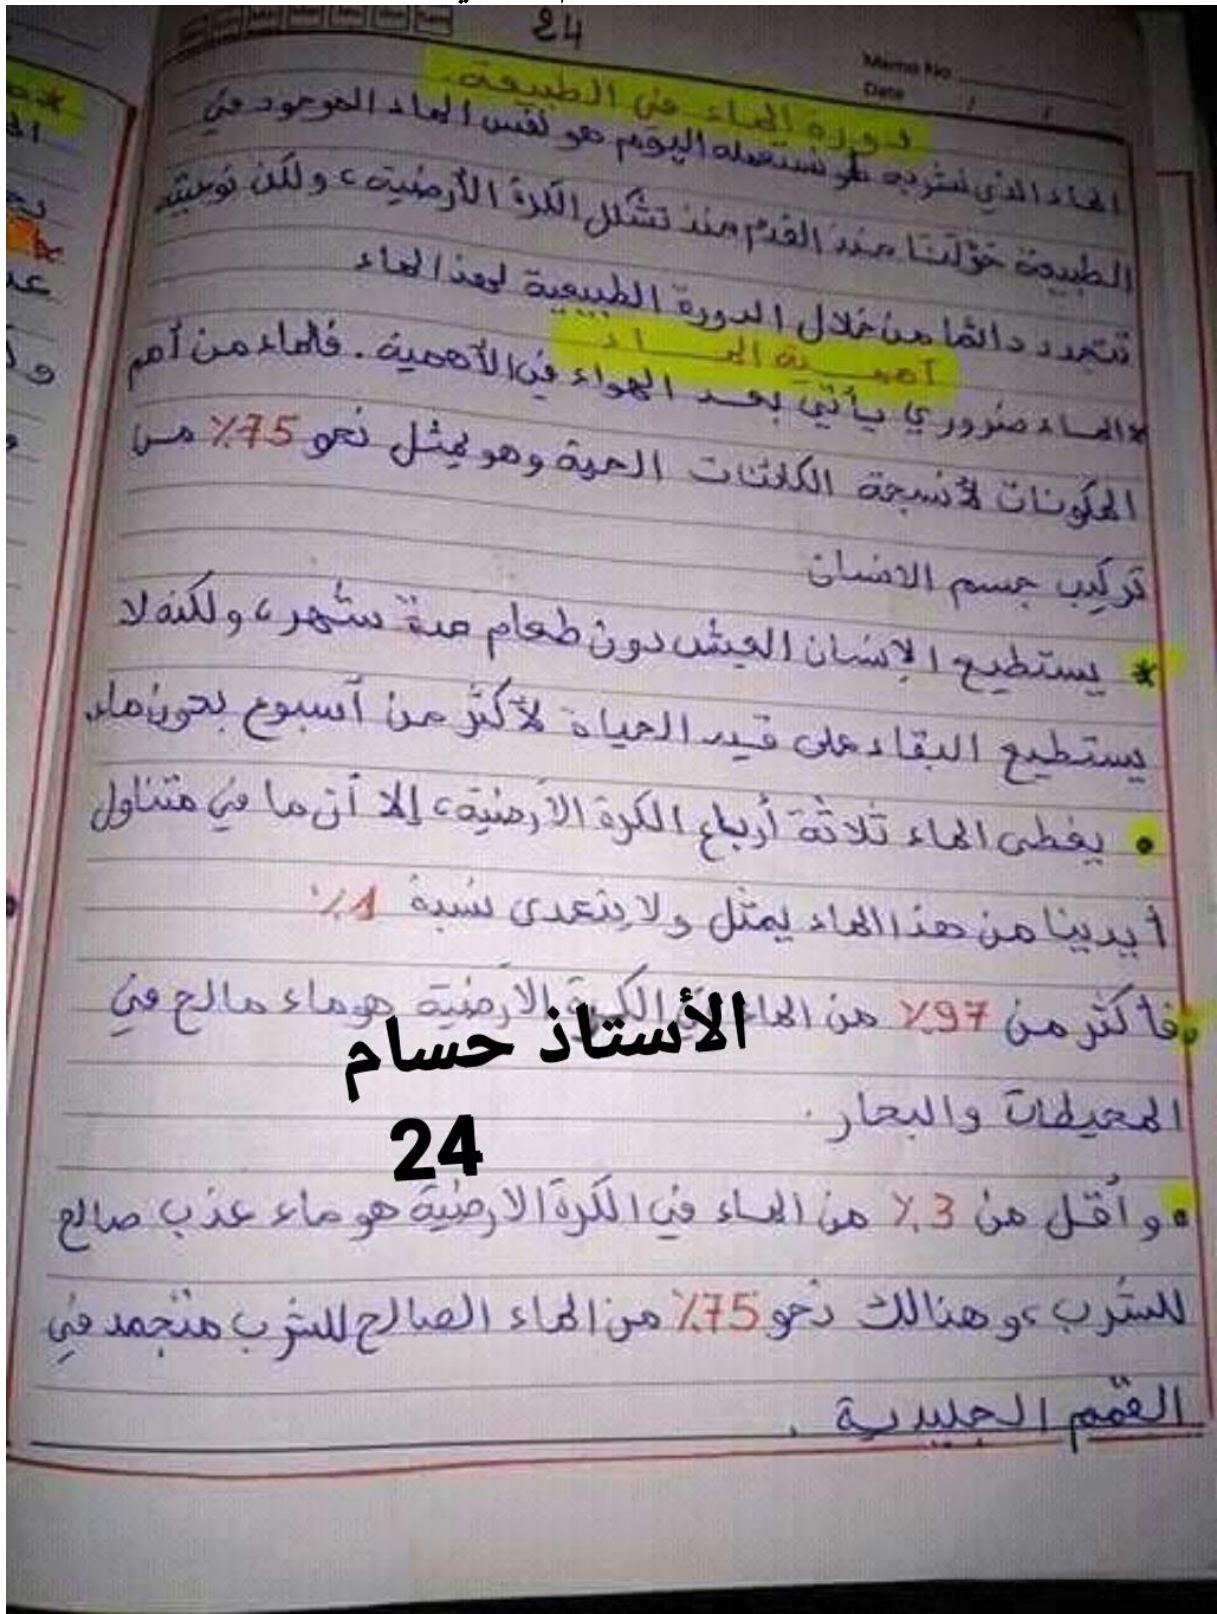 24
Memo No
Date / /
دورة الماء في الطبيعة.
الماء الذي نشربه نستعمله اليوم هو نفس الماء الموجود في
الطبيعة منذ القدم منذ تشكل الكرة الأرضية، ولكن نوعيته
تتجدد دائما من خلال الدورة الطبيعية لهذا الماء
أهمية الماء
*الماء ضروري يأتي بعد الهواء في الأهمية. فالماء من أهم
المكونات لأنسجة الكائنات الحية وهو يمثل نحو 75٪ من
تركيب جسم الانسان
* يستطيع الإنسان العيش دون طعام مدة شهر، ولكنه لا
يستطيع البقاء على قيد الحياة لأكثر من أسبوع بدون ماء.
• يغطى الماء ثلاثة أرباع الكرة الأرضية، إلا أن ما في متناول
أيدينا من هذا الماء يمثل ولا يتعدى نسبة 1٪
• فأكثر من 97٪ من الماء في الكرة الأرضية هو ماء مالح في
الأستاذ حسام
المحيطات والبحار.
24
• وأقل من 3٪ من الماء في الكرة الارضية هو ماء عذب صالح
للشرب، وهنالك نحو 75٪ من الماء الصالح للشرب متجمد في
القمم الجليدية.